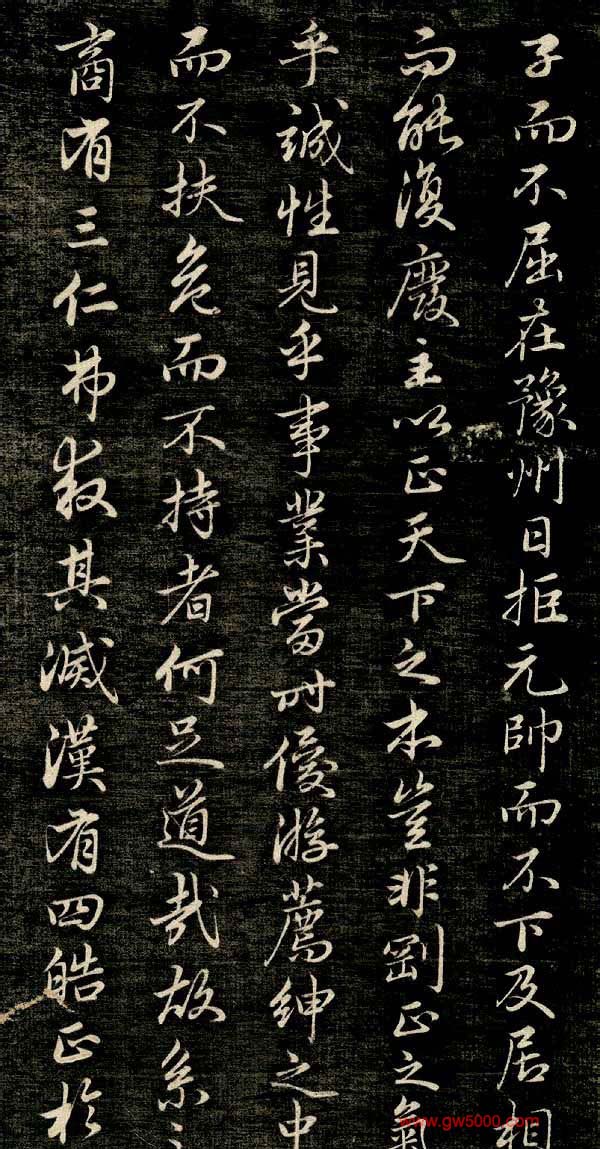 子而不屈在豫州日拒元帥而不下及居相
而能復廢主以正天下之本豈非剛正之氣
乎誠性見乎事業當時優游薦紳之中
而不扶危而不持者何足道哉故系
商有三仁弗救其滅漢有四皓正於
www.gw5000.com